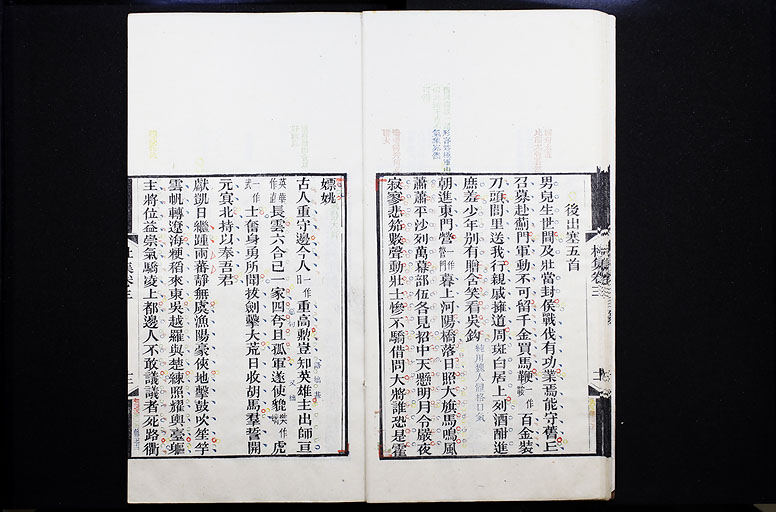 後出塞五首
男兒生世間及壯當封侯戰伐有功業焉能守舊丘
召募赴薊門軍動不可留千金買馬鞭一作鞍百金裝
刀頭閭里送我行親戚擁道周斑白居上列酒酣進
庶羞少年別有贈含笑看吳鈎
朝進東門營一作營門暮上河陽橋落日照大旗馬鳴風
蕭蕭平沙列萬幕部伍各見招中天懸明月令嚴夜
寂寥悲笳數聲動壯士慘不驕借問大將誰恐是霍
嫖姚
古人重守邊今人一作日重高勳豈知英雄主出師亘
長雲六合已一家四夷且孤軍遂使貔虎
士奮身勇所聞拔劍擊大荒日收胡馬羣誓開
元冥北持以奉吾君
獻凱日繼踵兩蕃靜無虞漁陽豪俠地擊鼓吹笙竽
雲帆轉遼海粳稻來東吳越羅與楚練照耀輿臺軀
主將位益崇氣驕凌上都邊人不敢議議者死路衢
杜集卷三